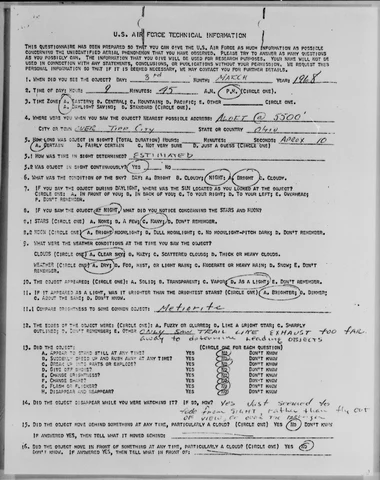 U.S. AIR FORCE TECHNICAL INFORMATION
THIS QUESTIONNAIRE HAS BEEN PREPARED SO THAT YOU CAN GIVE THE U.S. AIR FORCE AS MUCH INFORMATION AS POSSIBLE
CONCERNING THE UNIDENTIFIED AERIAL PHENOMENON THAT YOU HAVE OBSERVED. PLEASE TRY TO ANSWER AS MANY QUESTIONS
AS YOU POSSIBLY CAN. THE INFORMATION THAT YOU GIVE WILL BE USED FOR RESEARCH PURPOSES. YOUR NAME WILL NOT BE
USED IN CONNECTION WITH ANY STATEMENTS, CONCLUSIONS, OR PUBLICATIONS WITHOUT YOUR PERMISSION. WE REQUEST THIS
PERSONAL INFORMATION SO THAT IF IT IS DEEMED NECESSARY, WE MAY CONTACT YOU FOR FURTHER DETAILS.
1. WHEN DID YOU SEE THE OBJECT? DAY: 3rd MONTH: MARCH YEAR: 1968
2. TIME OF DAY: HOURS 9 MINUTES: 45 A.M. P.M. (CIRCLE ONE).
3. TIME ZONE: A. EASTERN B. CENTRAL C. MOUNTAIN D. PACIFIC E. OTHER CIRCLE ONE.
A. DAYLIGHT SAVING B. STANDARD (CIRCLE ONE).
4. WHERE WERE YOU WHEN YOU SAW THE OBJECT? NEAREST POSTAL ADDRESS: @ 5500'
CITY OR TOWN OVER Tipp City STATE OR COUNTRY Ohio
5. HOW LONG WAS OBJECT IN SIGHT? (TOTAL DURATION) HOURS: MINUTES: SECONDS: APROX 10
A. CERTAIN B. FAIRLY CERTAIN C. NOT VERY SURE D. JUST A GUESS (CIRCLE ONE)
5.1 HOW WAS TIME IN SIGHT DETERMINED? ESTIMATED
5.2 WAS OBJECT IN SIGHT CONTINUOUSLY? YES NO
6. WHAT WAS THE CONDITION OF THE SKY? DAY: A. BRIGHT B. CLOUDY: NIGHT: A. BRIGHT B. CLOUDY.
7. IF YOU SAW THE OBJECT DURING DAYLIGHT, WHERE WAS THE SUN LOCATED AS YOU LOOKED AT THE OBJECT?
CIRCLE ONE: A. IN FRONT OF YOU; B. IN BACK OF YOU; C. TO YOUR RIGHT; D. TO YOUR LEFT; E. OVERHEAD;
F. DON'T REMEMBER.
8. IF YOU SAW THE OBJECT AT NIGHT, WHAT DID YOU NOTICE CONCERNING THE STARS AND MOON?
8.1 STARS (CIRCLE ONE) A. NONE; B. A FEW; C. MANY; D. DON'T REMEMBER.
8.2 MOON (CIRCLE ONE) A. BRIGHT MOONLIGHT; B. DULL MOONLIGHT; C. NO MOONLIGHT-PITCH DARK; D. DON'T REMEMBER.
9. WHAT WERE THE WEATHER CONDITIONS AT THE TIME YOU SAW THE OBJECT?
CLOUDS (CIRCLE ONE) A. CLEAR SKY; B. HAZY; C. SCATTERED CLOUDS; D. THICK OR HEAVY CLOUDS.
WEATHER (CIRCLE ONE) A. DRY; B. FOG, MIST, OR LIGHT RAIN; C. MODERATE OR HEAVY RAIN; D. SNOW; E. DON'T
REMEMBER.
10. THE OBJECT APPEARED: (CIRCLE ONE) A. SOLID; B. TRANSPARENT; C. VAPOR; D. AS A LIGHT; E. DON'T REMEMBER.
11. IF IT APPEARED AS A LIGHT, WAS IT BRIGHTER THAN THE BRIGHTEST STARS? (CIRCLE ONE) A. BRIGHTER; B. DIMMER;
C. ABOUT THE SAME; D. DON'T KNOW.
11.1 COMPARE BRIGHTNESS TO SOME COMMON OBJECT: Meteorite
12. THE EDGES OF THE OBJECT WERE: (CIRCLE ONE) A. FUZZY OR BLURRED; B. LIKE A BRIGHT STAR; C. SHARPLY
OUTLINED; D. DON'T REMEMBER; E. OTHER Only saw TRAIL LIKE EXHAUST too far
away to determine leading objects
13. DID THE OBJECT: (CIRCLE ONE FOR EACH QUESTION)
A. APPEAR TO STAND STILL AT ANY TIME? YES NO DON'T KNOW
B. SUDDENLY SPEED UP AND RUSH AWAY AT ANY TIME? YES NO DON'T KNOW
C. BREAK UP INTO PARTS OR EXPLODE? YES NO DON'T KNOW
D. GIVE OFF SMOKE? YES NO DON'T KNOW
E. CHANGE BRIGHTNESS? YES NO DON'T KNOW
F. CHANGE SHAPE? YES NO DON'T KNOW
G. FLASH OR FLICKER? YES NO DON'T KNOW
H. DISAPPEAR AND REAPPEAR? YES NO DON'T KNOW
14. DID THE OBJECT DISAPPEAR WHILE YOU WERE WATCHING IT? IF SO, HOW? yes Just seemed to
fade from sight, rather than fly out
of view
15. DID THE OBJECT MOVE BEHIND SOMETHING AT ANY TIME, PARTICULARLY A CLOUD? (CIRCLE ONE) YES NO DON'T KNOW
IF ANSWERED YES, THEN TELL WHAT IT MOVED BEHIND:
16. DID THE OBJECT MOVE IN FRONT OF SOMETHING AT ANY TIME, PARTICULARLY A CLOUD? (CIRCLE ONE) YES NO
DON'T KNOW. IF ANSWERED YES, THEN TELL WHAT IN FRONT OF: